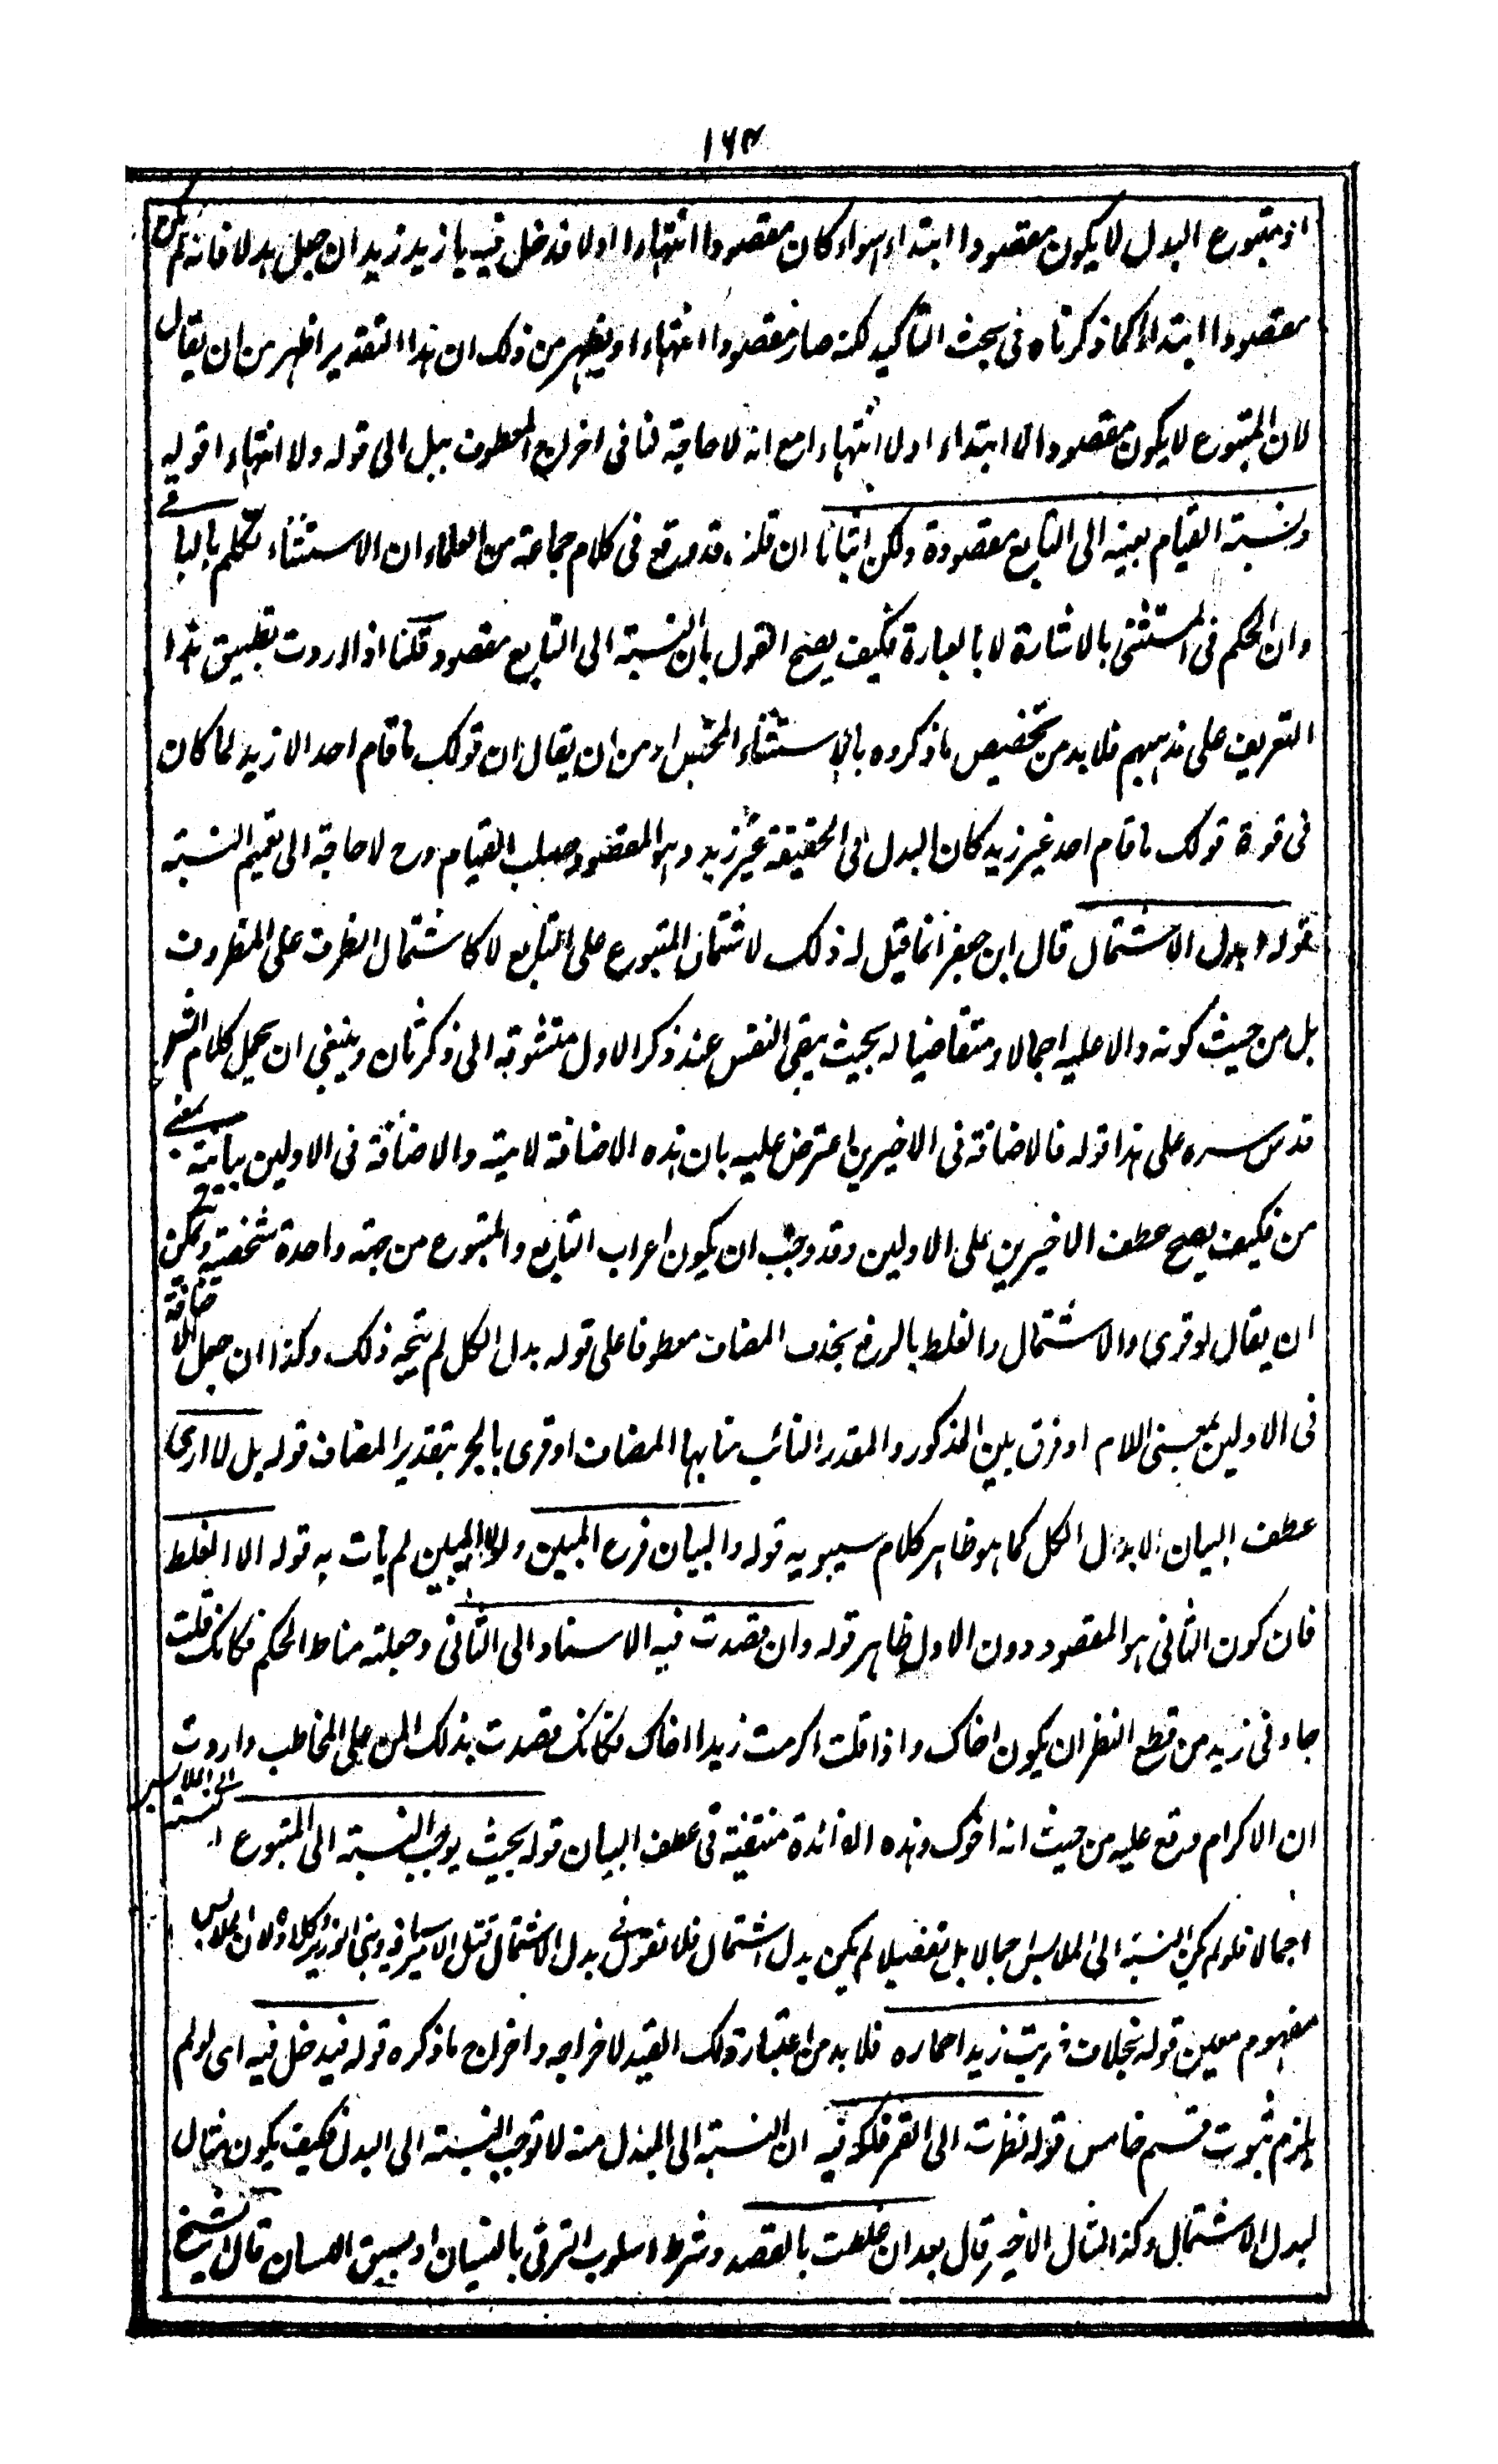 ١٦٣
اذ متبوع البدل لا يكون مقصودا ابتداء سواء كان مقصودا انتهاء ا اولا فدخل فيه يا زيد زيد ان جعل بدلا فانه لم يكن
مقصودا ابتداء كما ذكرناه فى بحث التأكيد لكنه صار مقصودا انتهاء ا ويظهر من ذلك ان هذا التقدير اظهر من ان يقال
لان المتبوع لا يكون مقصودا لا ابتداء ا ولا انتهاء ا مع انه لا حاجة لنا فى اخراج المعطوف ببل الى قوله ولا انتهاء ا قوله
ونسبة القيام بعينه الى التابع مقصودة ولكن اثباتا ان قلت قد وقع فى كلام جماعة من العلماء ان الاستثناء تكلم بالباقى
وان الحكم فى المستثنى بالاشارة لا بالعبارة فكيف يصح القول بان النسبة الى التابع مقصود قلنا اذا اردت تطبيق هذا
التعريف على مذهبهم فلا بد من تخصيص ما ذكروه بالاستثناء او من ان يقال ان قولك ما قام احد الا زيد لما كان
فى قوة قولك ما قام احد غير زيد كان البدل فى الحقيقة غير زيد وهو المقصود بسلب القيام وح لا حاجة الى تعميم النسبة
قوله وبدل الاشتمال قال ابن جعفر انما قيل له ذلك لاشتمال المتبوع على التابع لا كاشتمال الظرف على المظروف
بل من حيث كونه دالا عليه اجمالا ومتقاضيا له بحيث يبقى النفس عند ذكر الاول متشوقة الى ذكر ثان وينبغى ان يحمل كلام الشارح
قدس سره على هذا قوله فالاضافة فى الاخيرين اعترض عليه بان هذه الاضافة لامية والاضافة فى الاولين بيانية بمعنى
من فكيف يصح عطف الاخيرين على الاولين وقد وجب ان يكون اعراب التابع والمتبوع من جهة واحدة شخصية ويمكن ح
ان يقال لو قرى والاشتمال والغلط بالرفع بحذف المضاف معطوفا على قوله بدل الكل لم يتجه ذلك وكذا ان جعل الاضافة
فى الاولين بمعنى اللام او فرق بين المذكور والمقدر النائب منابها المضاف او قرى بالجر بتقدير المضاف قوله بل لا ارى
عطف البيان الا بدل الكل كما هو ظاهر كلام سيبويه قوله والبيان فرع المبين ولولا المبين لم يأت به قوله الا الغلط
فان كون الثانى هو المقصود دون الاول ظاهر قوله وان قصدت فيه الاسناد الى الثانى وجعلته مناط الحكم فكانك قلت
جاءنى زيد من قطع النظر ان يكون اخاك واذا قلت اكرمت زيدا اخاك فكانك قصدت بذلك المن على المخاطب واردت
ان الاكرام وقع عليه من حيث انه اخوك وهذه الفائدة منتفية فى عطف البيان قوله بحيث يوجب النسبة الى المتبوع النسبة الى الملابس
اجمالا فلو لم يكن النسبة الى الملابس اجمالا بل تفصيلا لم يكن بدل اشتمال فلا تقول فى بدل الاشتمال قتل الامير سيافه وبنى الوزير وكلاؤه لان الملابس
مفهوم معين قوله بخلاف ضربت زيدا حماره فلا بد من اعتبار ذلك القيد لاخراجه واخراج ما ذكره قوله فيدخل فيه اى لو لم
يلزم ثبوت قسم خامس قوله نظرت الى القمر فلكه فيه ان النسبة الى المبدل منه لا توجب النسبة الى البدل فكيف يكون مثال
لبدل الاشتمال وكذا المثال الاخير قال بعد ان غلطت بالقصد وشرط اسلوب الترقى بالنسيان او بسبق اللسان قال الشيخ